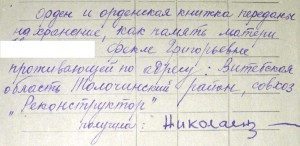 Орден и орденская книжка переданы
на хранение, как память матери
Фекле Григорьевне
проживающей по адресу: Витебская
область Толочинский район, совхоз
„Реконструктор"
получила: